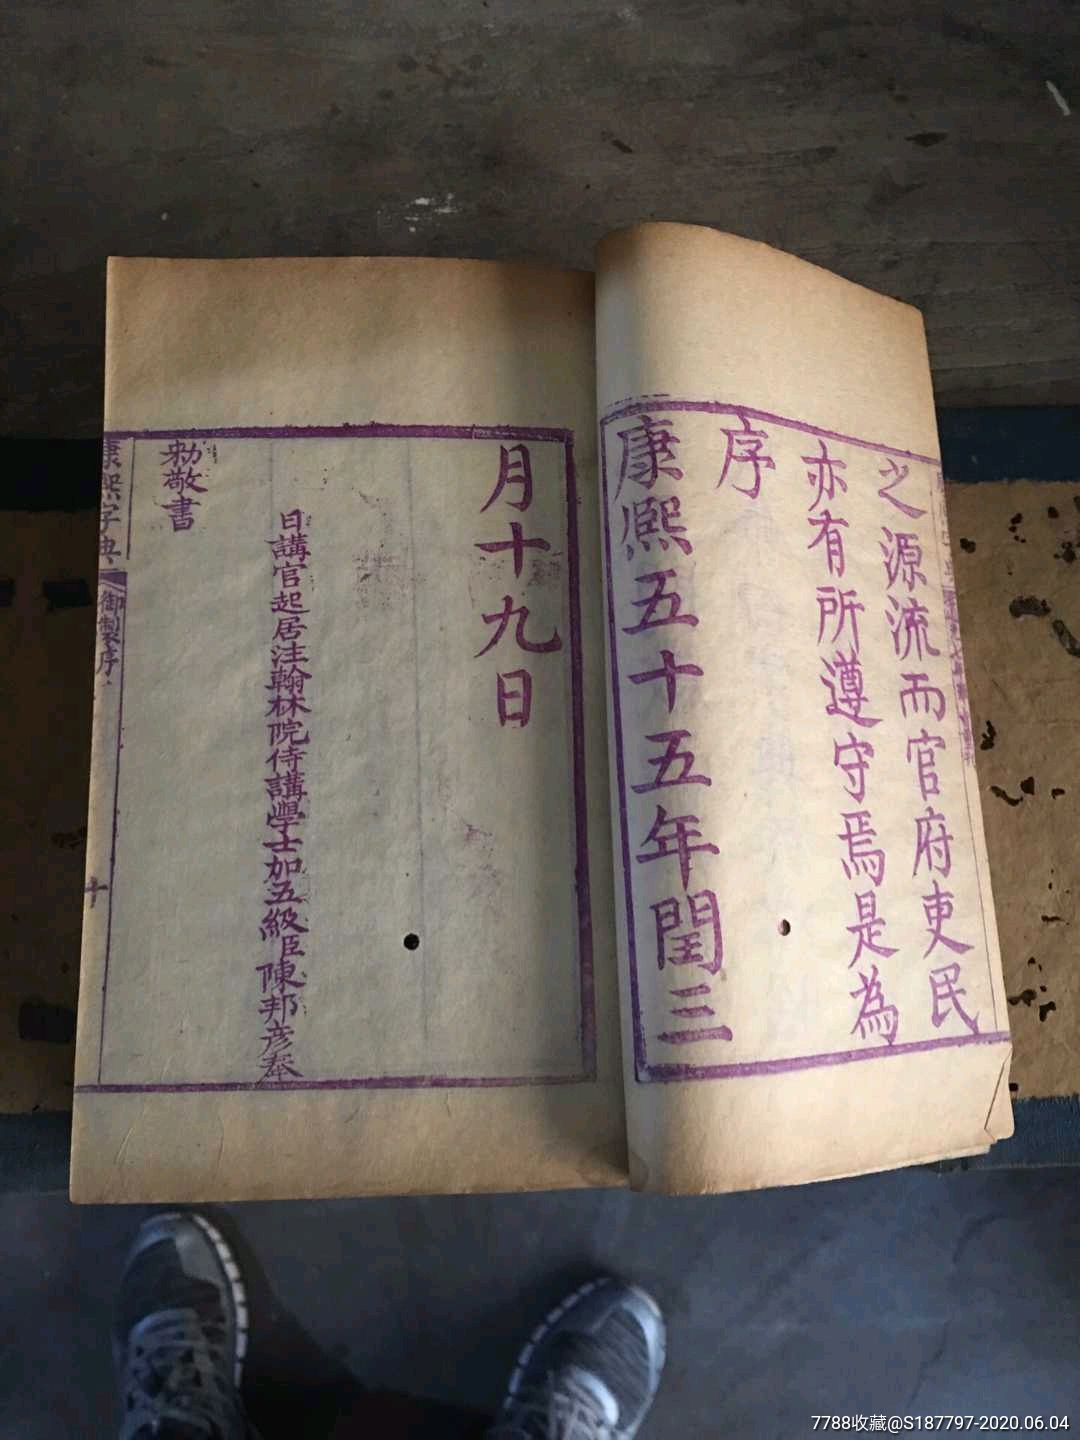 之源流而官府吏民
亦有所遵守焉是為
序
康熙五十五年閏三
月十九日
日講官起居注翰林院侍講學士加五級臣陳邦彥奉
勅敬書
康熙字典
御製序
十
7788收藏@S187797-2020.06.04